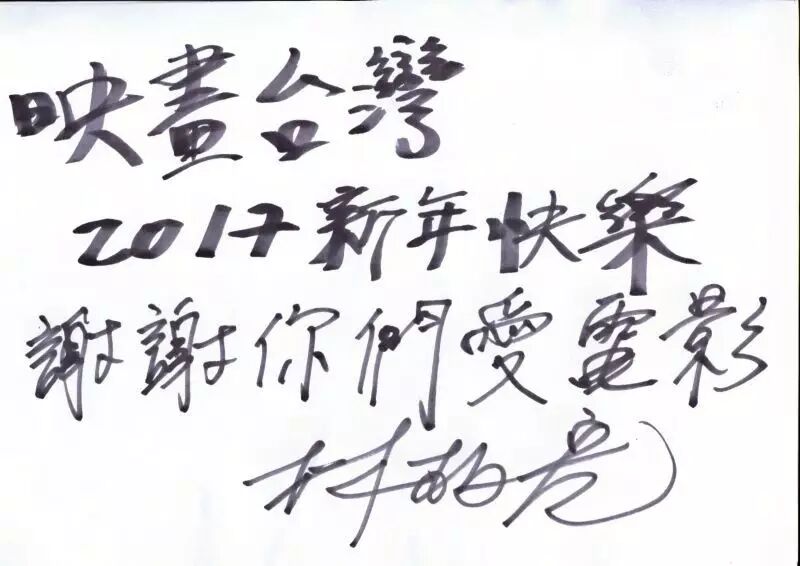 映畫台灣
2017新年快樂
謝謝你們愛電影
林柏宏